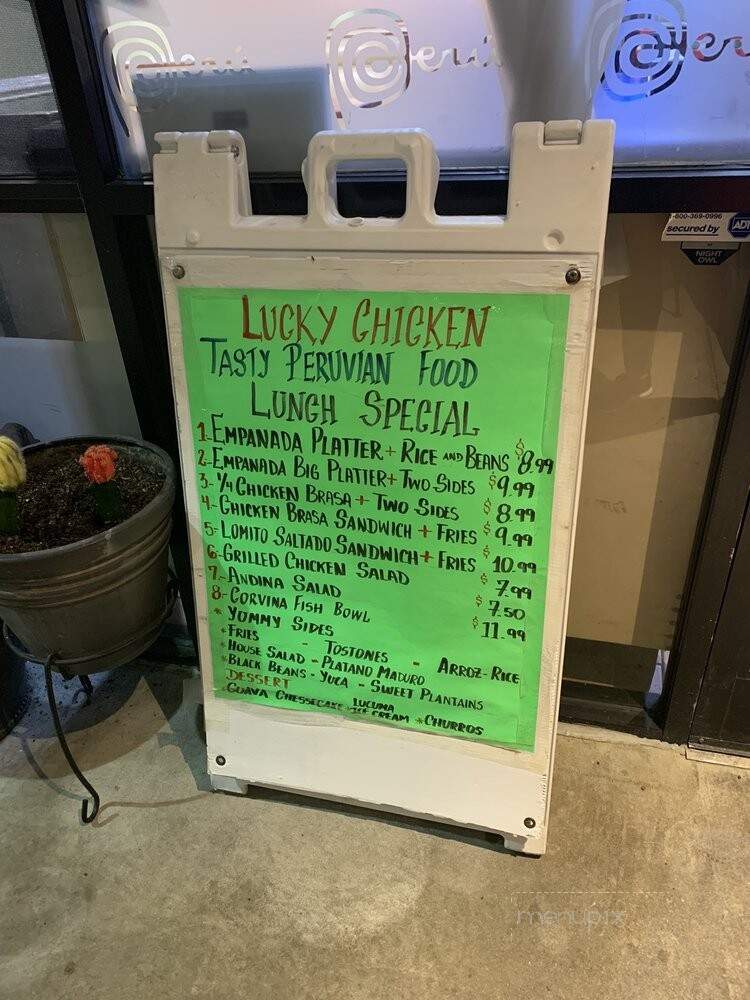 Perú Perú Per
1-800-369-0996
secured by ADT
NIGHT OWL
LUCKY CHICKEN
TASTY PERUVIAN FOOD
LUNCH SPECIAL
1-EMPANADA PLATTER + RICE AND BEANS $8.99
2-EMPANADA BIG PLATTER + TWO SIDES $9.99
3-1/4 CHICKEN BRASA + TWO SIDES $8.99
4-CHICKEN BRASA SANDWICH + FRIES $9.99
5-LOMITO SALTADO SANDWICH + FRIES $10.99
6-GRILLED CHICKEN SALAD $7.99
7-ANDINA SALAD $7.50
8-CORVINA FISH BOWL $11.99
* YUMMY SIDES
*FRIES - TOSTONES - ARROZ-RICE
*HOUSE SALAD - PLATANO MADURO
*BLACK BEANS - YUCA - SWEET PLANTAINS
DESSERT
*GUAVA CHESSECAKE *LUCUMA ICE CREAM *CHURROS
menupix